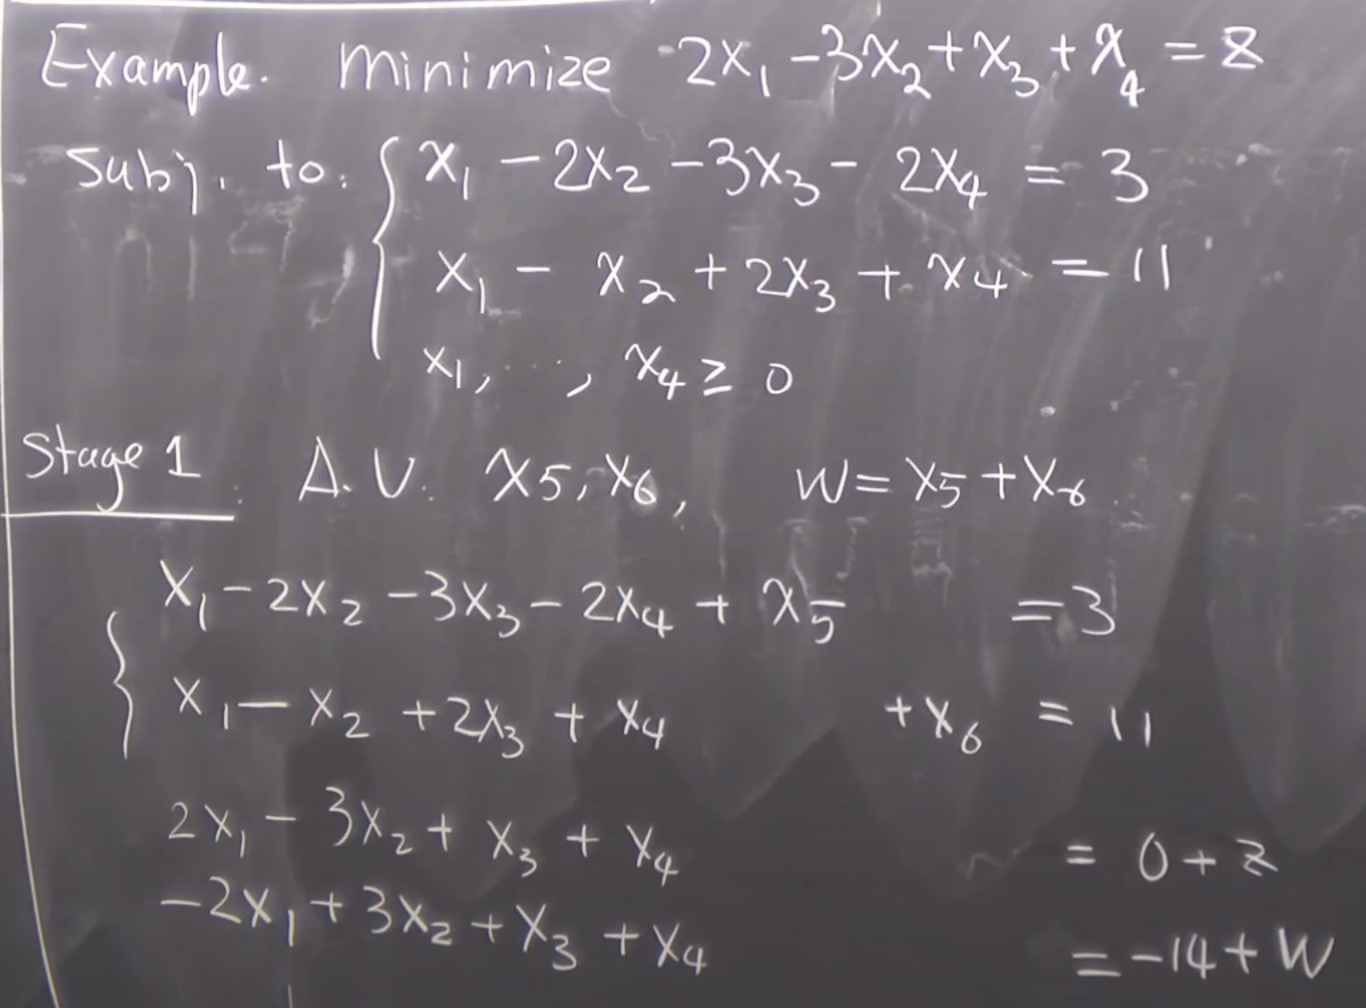 Example. Minimize 2x₁ - 3x₂ + x₃ + x₄ = z
Subj. to: { x₁ - 2x₂ - 3x₃ - 2x₄ = 3
x₁ - x₂ + 2x₃ + x₄ = 11
x₁, ..., x₄ ≥ 0
Stage 1. A.V. x₅, x₆, W = x₅ + x₆
{ x₁ - 2x₂ - 3x₃ - 2x₄ + x₅ = 3
x₁ - x₂ + 2x₃ + x₄ + x₆ = 11
2x₁ - 3x₂ + x₃ + x₄ = 0 + z
-2x₁ + 3x₂ + x₃ + x₄ = -14 + W